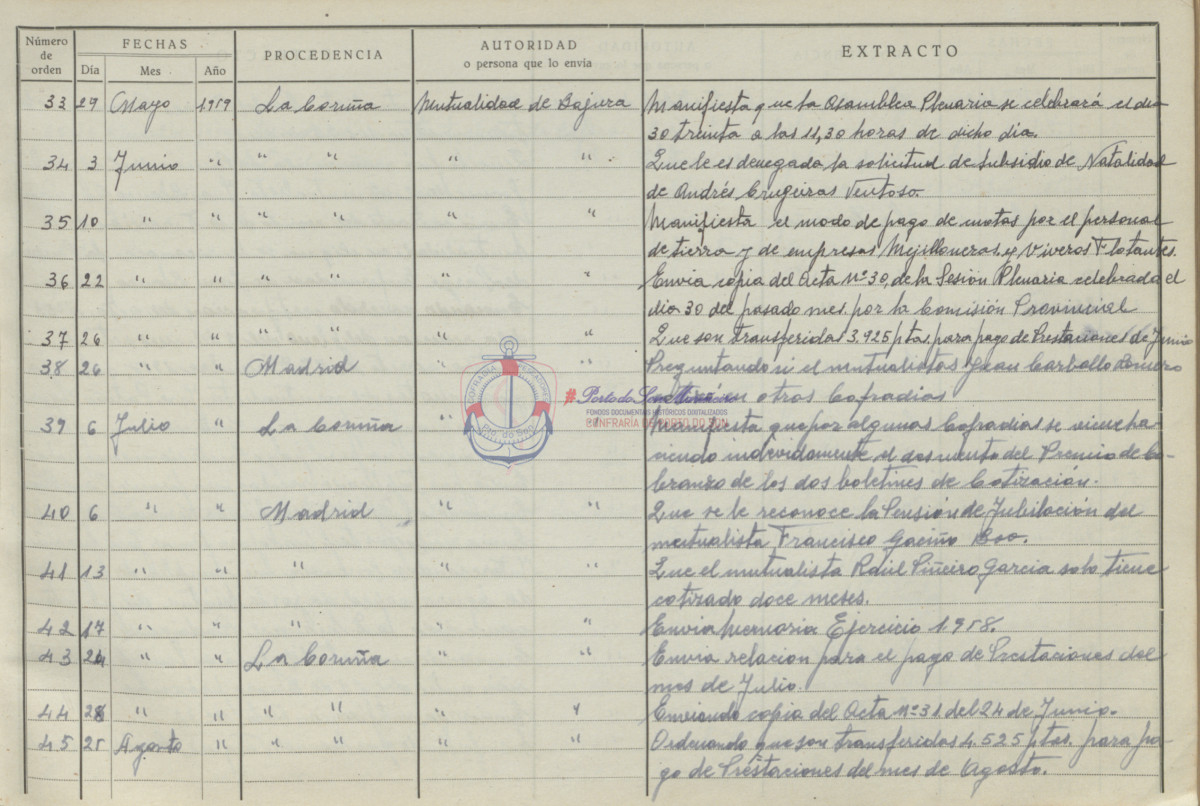 Número de orden FECHAS PROCEDENCIA AUTORIDAD o persona que lo envía EXTRACTO
Día Mes Año
33 29 Mayo 1959 La Coruña Mutualidad de Bajura Manifiesta que la Asamblea Plenaria se celebrará el dia
30 treinta a las 11,30 horas de dicho dia.
34 3 Junio " " " " " Que le es denegada la solicitud de Subsidio de Natalidad
de Andrés Crugeiras Ventoso.
35 10 " " " " " " Manifiesta el modo de pago de cuotas por el personal
de tierra y de empresas Mejilloneras y Viveros Flotantes.
36 22 " " " " " " Envia copia del Acta nº 30, de la Sesión Plenaria celebrada el
dia 30 del pasado mes, por la Comisión Provincial
37 26 " " " " " " Que son transferidas 3.925 ptas. para pago de Prestaciones de Junio
38 26 " " Madrid " " Preguntando si el mutualistas Juan Carballo Romero
en otras Cofradias
39 6 Julio " La Coruña " " Manifiesta que por algunas Cofradias se viene ha-
ciendo indevidamente el descuento del Premio de Co-
branza de los dos boletines de Cotización.
40 6 " " Madrid " " Que se le reconoce la Pensión de Jubilación del
mutualista Francisco Gaciño Boo.
41 13 " " " " " Que el mutualista Raúl Piñeiro Garcia solo tiene
cotizado doce meses.
42 17 " " " " " Envia Memoria Ejercicio 1.958.
43 24 " " La Coruña " " Envia relacion para el pago de Prestaciones del
mes de Julio.
44 28 " " " " " " Enviando copia del Acta nº 31 del 24 de Junio.
45 25 Agosto " " " " " Ordenando que son transferidas 4.525 ptas. para pa-
go de Prestaciones del mes de Agosto.
COFRADIA PESCADORES
Pto. do Son
#Porto do Son
FONDOS DOCUMENTAIS HISTÓRICOS DIGITALIZADOS
CONFRARIA DE PORTO DO SON